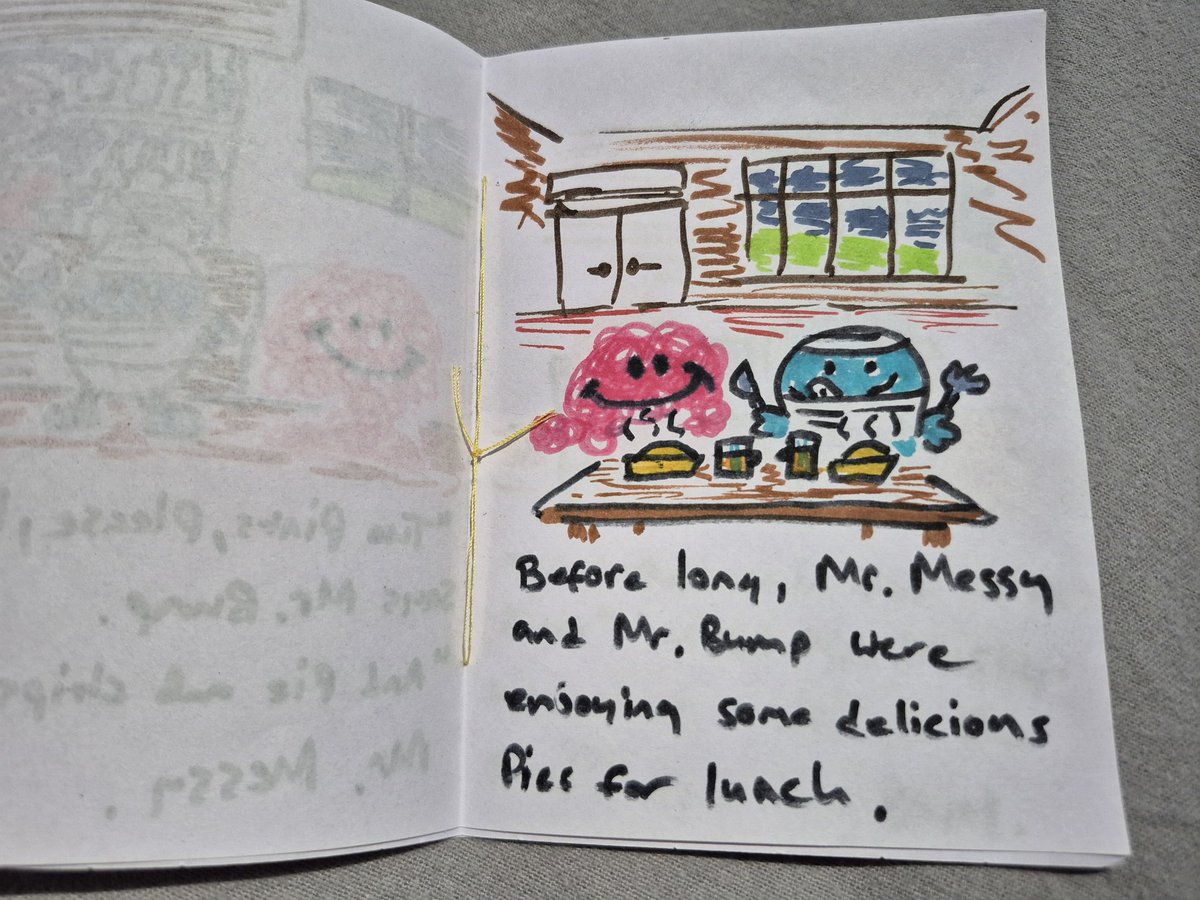 "Two Pints, please,"
says Mr. Bump.
"And Pie and chips
Mr. Messy.
Before long, Mr. Messy
and Mr. Bump were
enjoying some delicious
Pies for lunch.